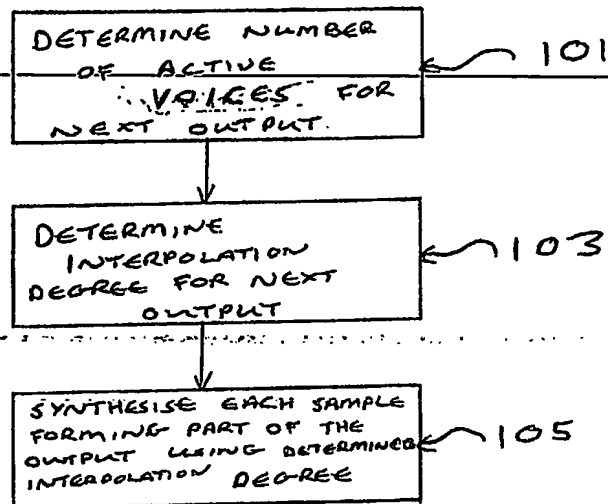 DETERMINE NUMBER
OF ACTIVE
VOICES FOR
NEXT OUTPUT.
101
DETERMINE
INTERPOLATION
DEGREE FOR NEXT
OUTPUT
103
SYNTHESISE EACH SAMPLE
FORMING PART OF THE
OUTPUT USING DETERMINED
INTERPOLATION DEGREE
105